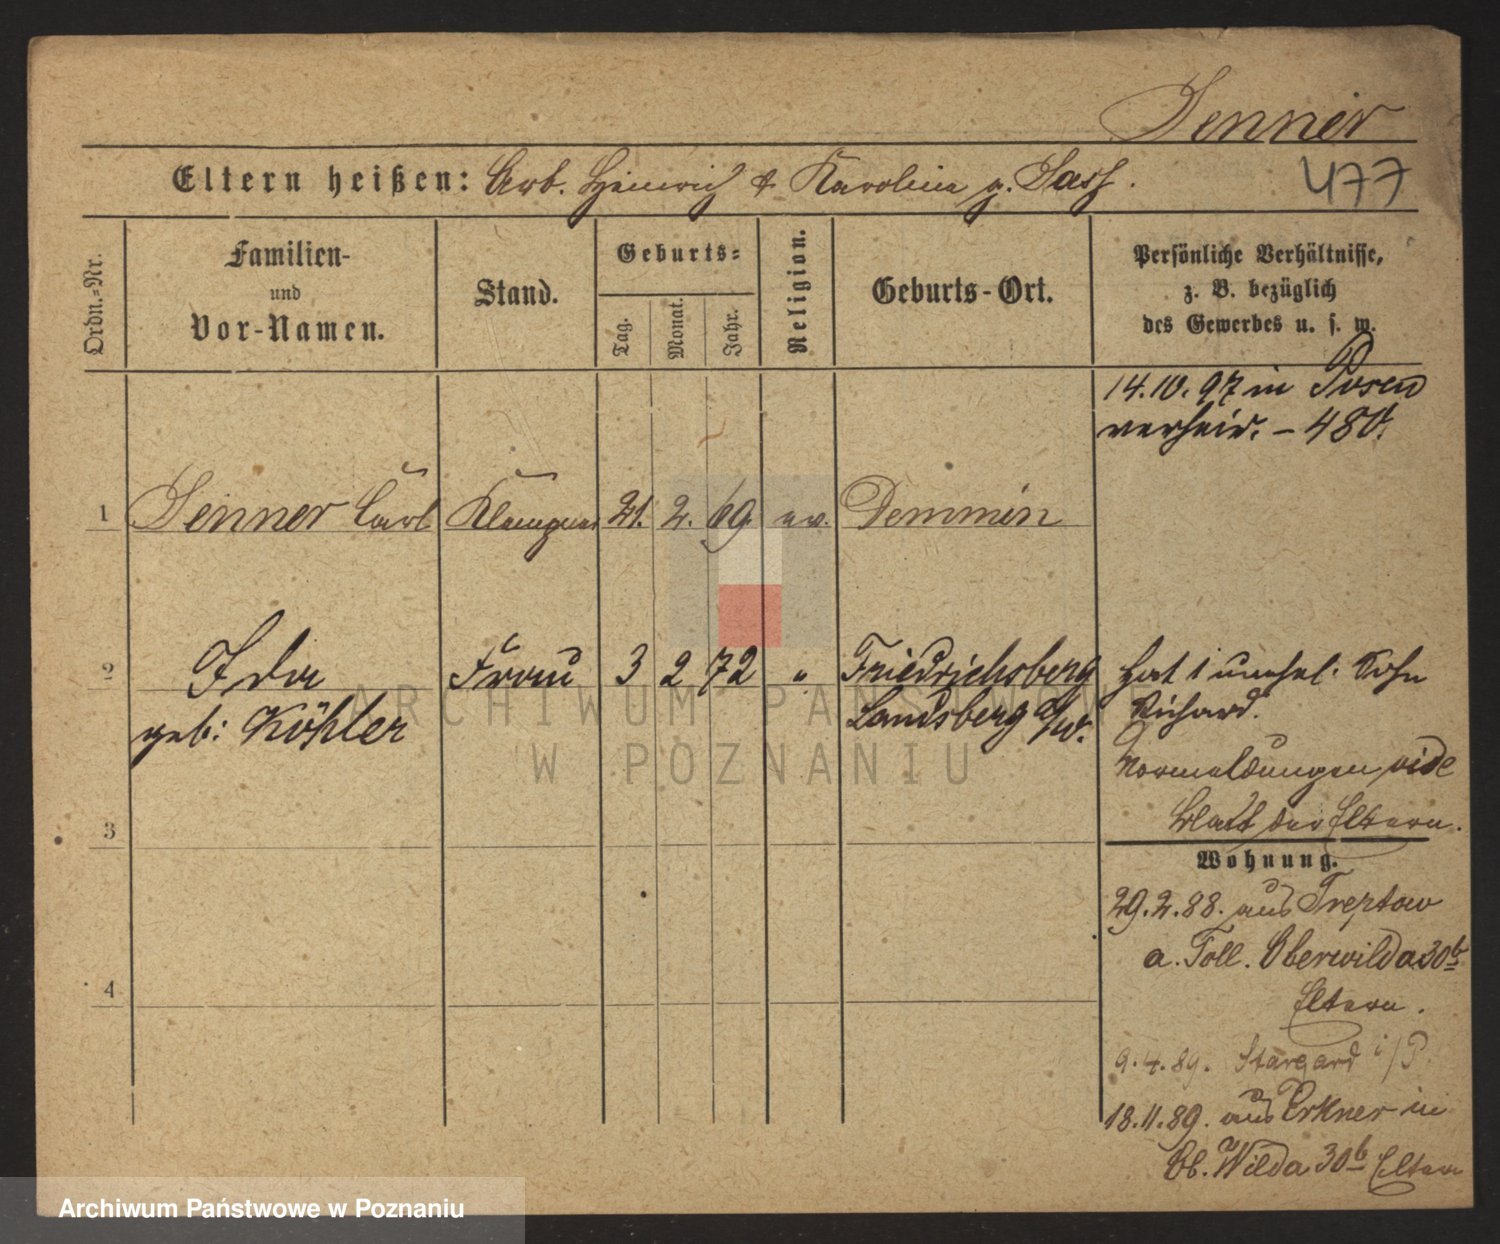 Denner
Eltern heißen: Arb. Heinrich & Karoline g. Sass.
477
Ordn.-Nr.
Familien-
und
Vor-Namen.
Stand.
Geburts-
Tag.
Monat.
Jahr.
Religion.
Geburts-Ort.
Persönliche Verhältnisse,
z. B. bezüglich
des Gewerbes u. s. w.
14.10.97 in Posen
verheir. – 480.
1 Denner Carl Klempner 21. 2. 69. ev. Demmin
2 Ida Frau 3 2 72 " Friedrichsberg
geb: Köhler Landsberg a/w.
Hat 1 unehel. Sohn
Richard.
Vormeldungen vide
Blatt der Eltern.
3
Wohnung.
29.2.88. aus Treptow
a. Toll. Oberwilda 30b
Eltern.
4
9.4.89. Stargard i/P.
18.11.89. aus Erkner in
Ob. Wilda 30b Eltern
ARCHIWUM PAŃSTWOWE
W POZNANIU
Archiwum Państwowe w Poznaniu